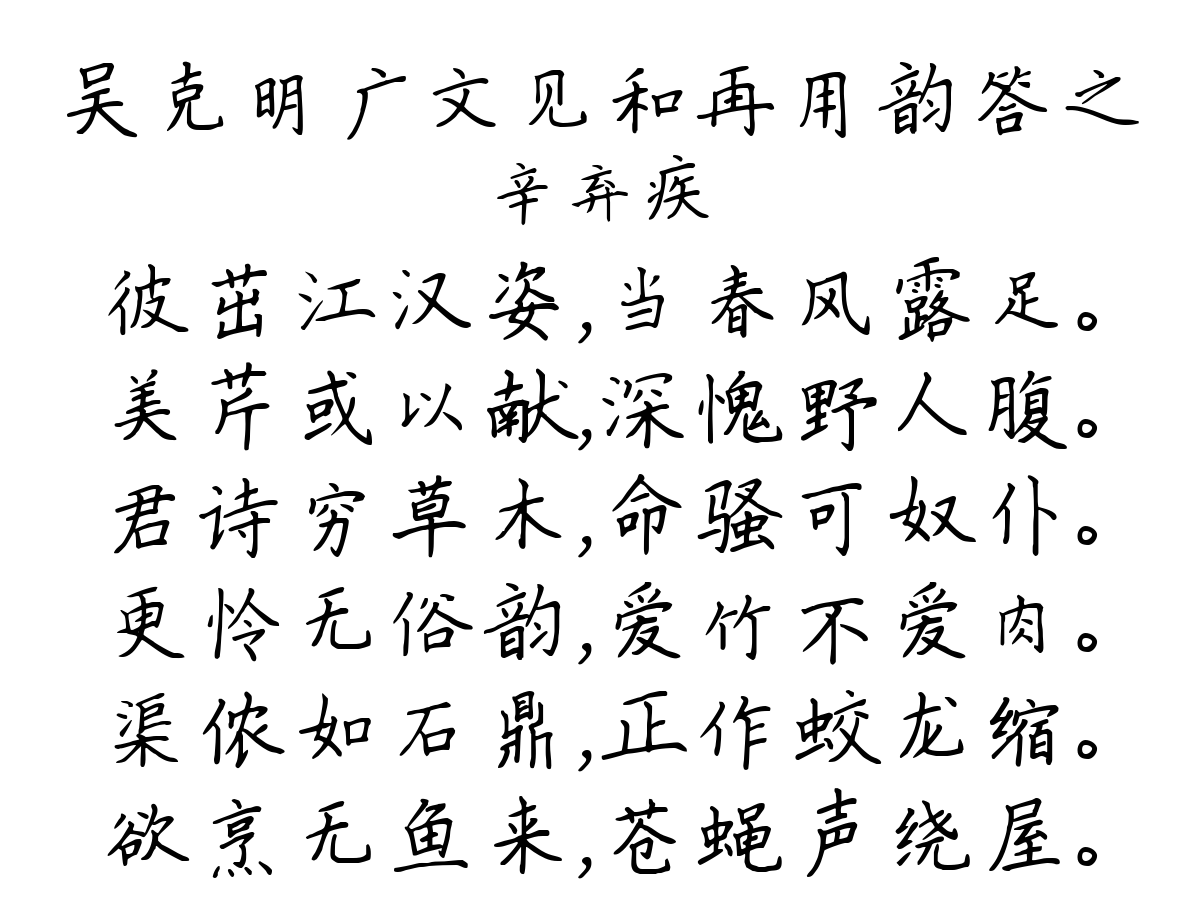 吴克明广文见和再用韵答之
辛弃疾
彼茁江汉姿,当春风露足。
美芹或以献,深愧野人腹。
君诗穷草木,命骚可奴仆。
更怜无俗韵,爱竹不爱肉。
渠侬如石鼎,正作蛟龙缩。
欲烹无鱼来,苍蝇声绕屋。